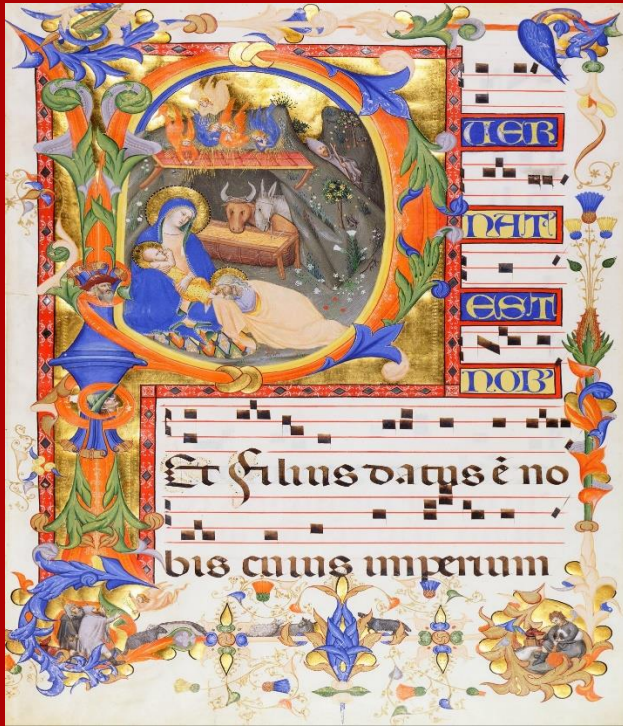 P
UER
NAT
EST
NOB'
Et filius datus ē no
bis cuius imperium